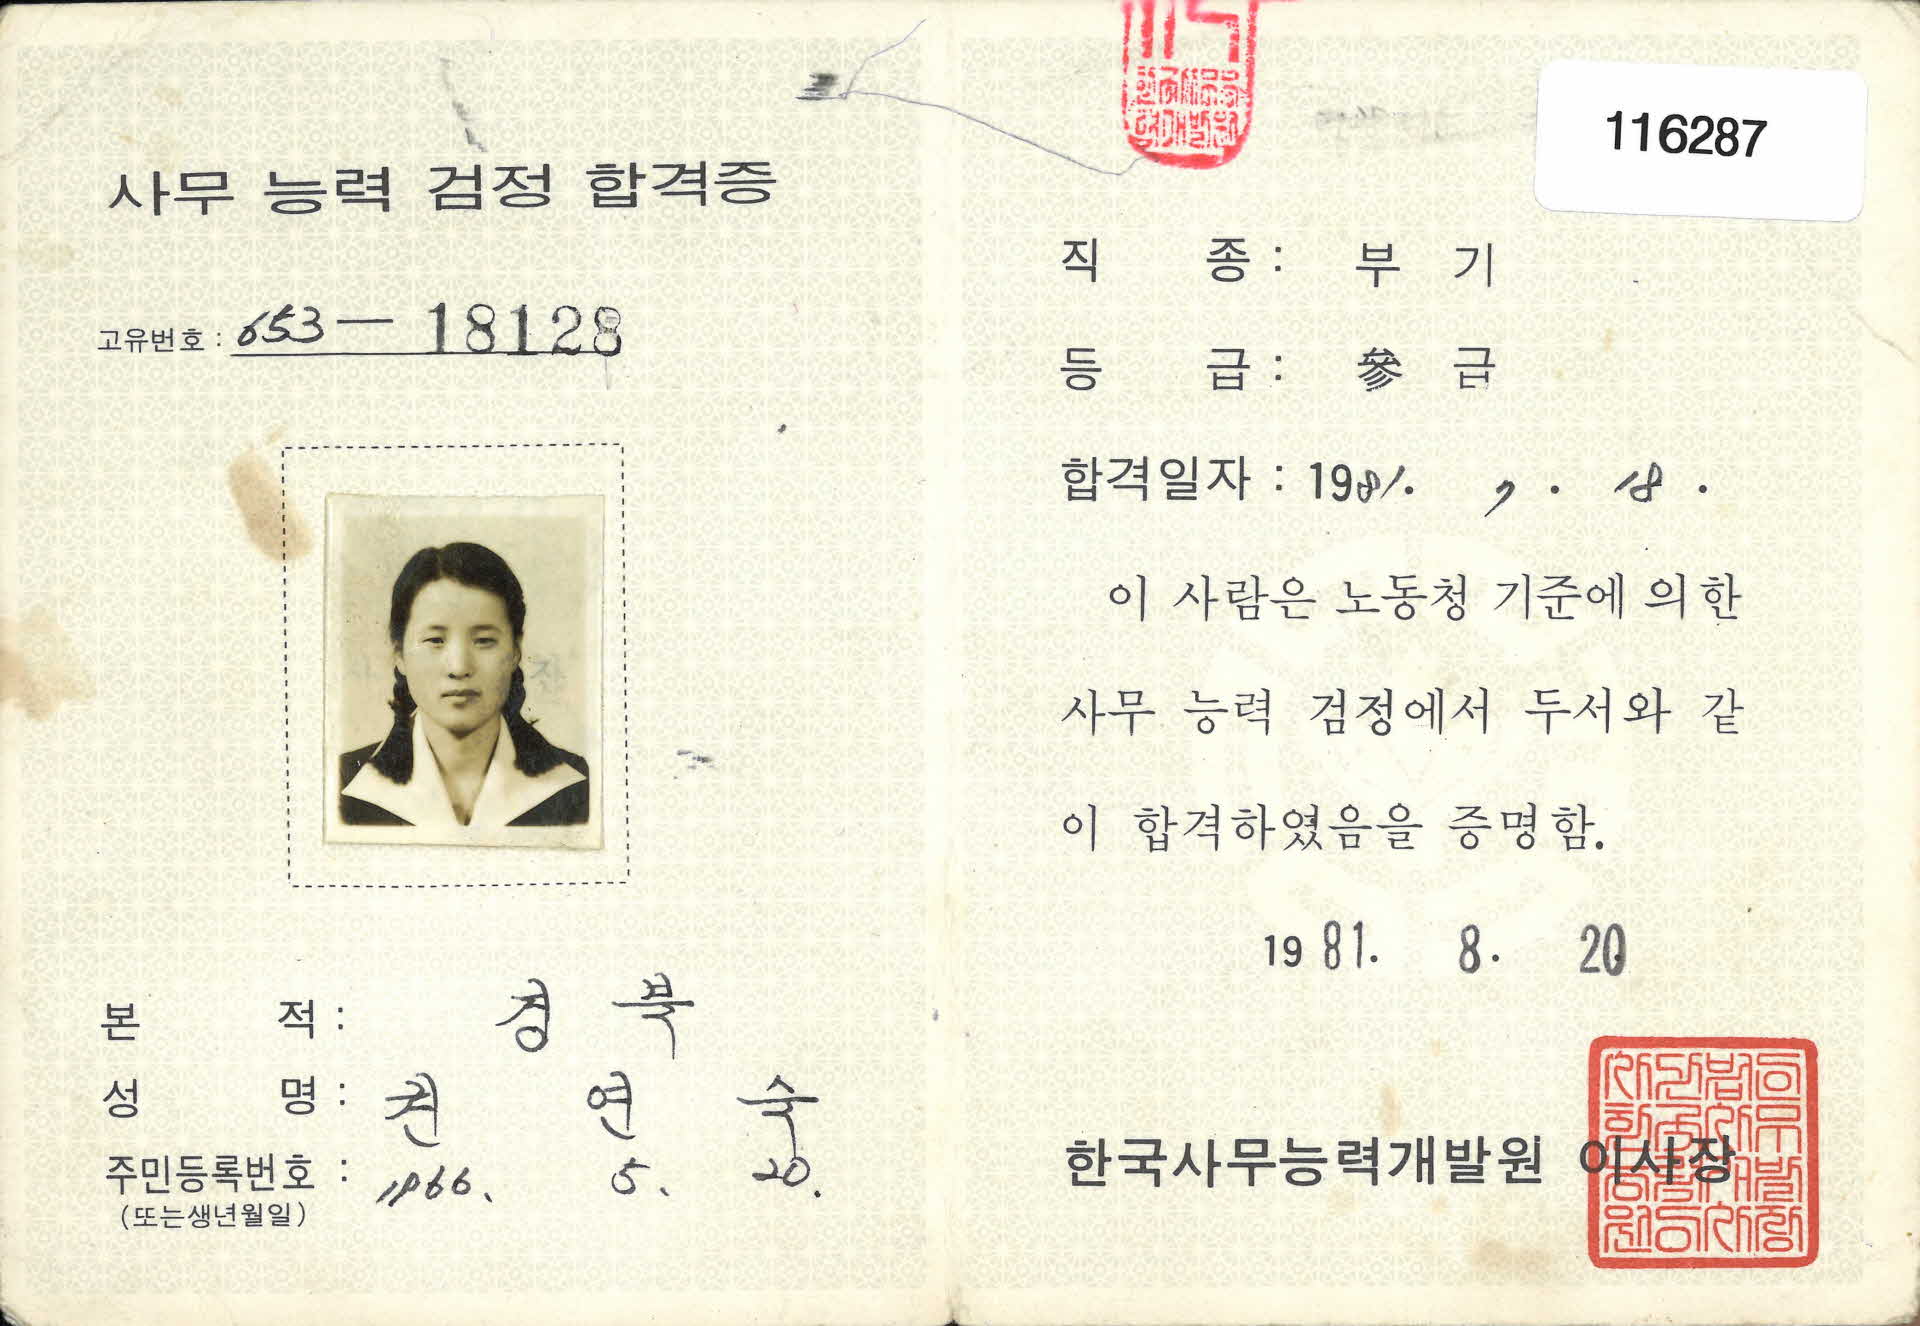 사무 능력 검정 합격증
고유번호 : 653 — 18128
본 적 : 경 북
성 명 : 권 연 숙
주민등록번호 : 1966. 5. 20.
(또는생년월일)
116287
직 종 : 부 기
등 급 : 參 급
합격일자 : 1981. 7. 18.
이 사람은 노동청 기준에 의한
사무 능력 검정에서 두서와 같
이 합격하였음을 증명함.
1981. 8. 20
한국사무능력개발원 이사장